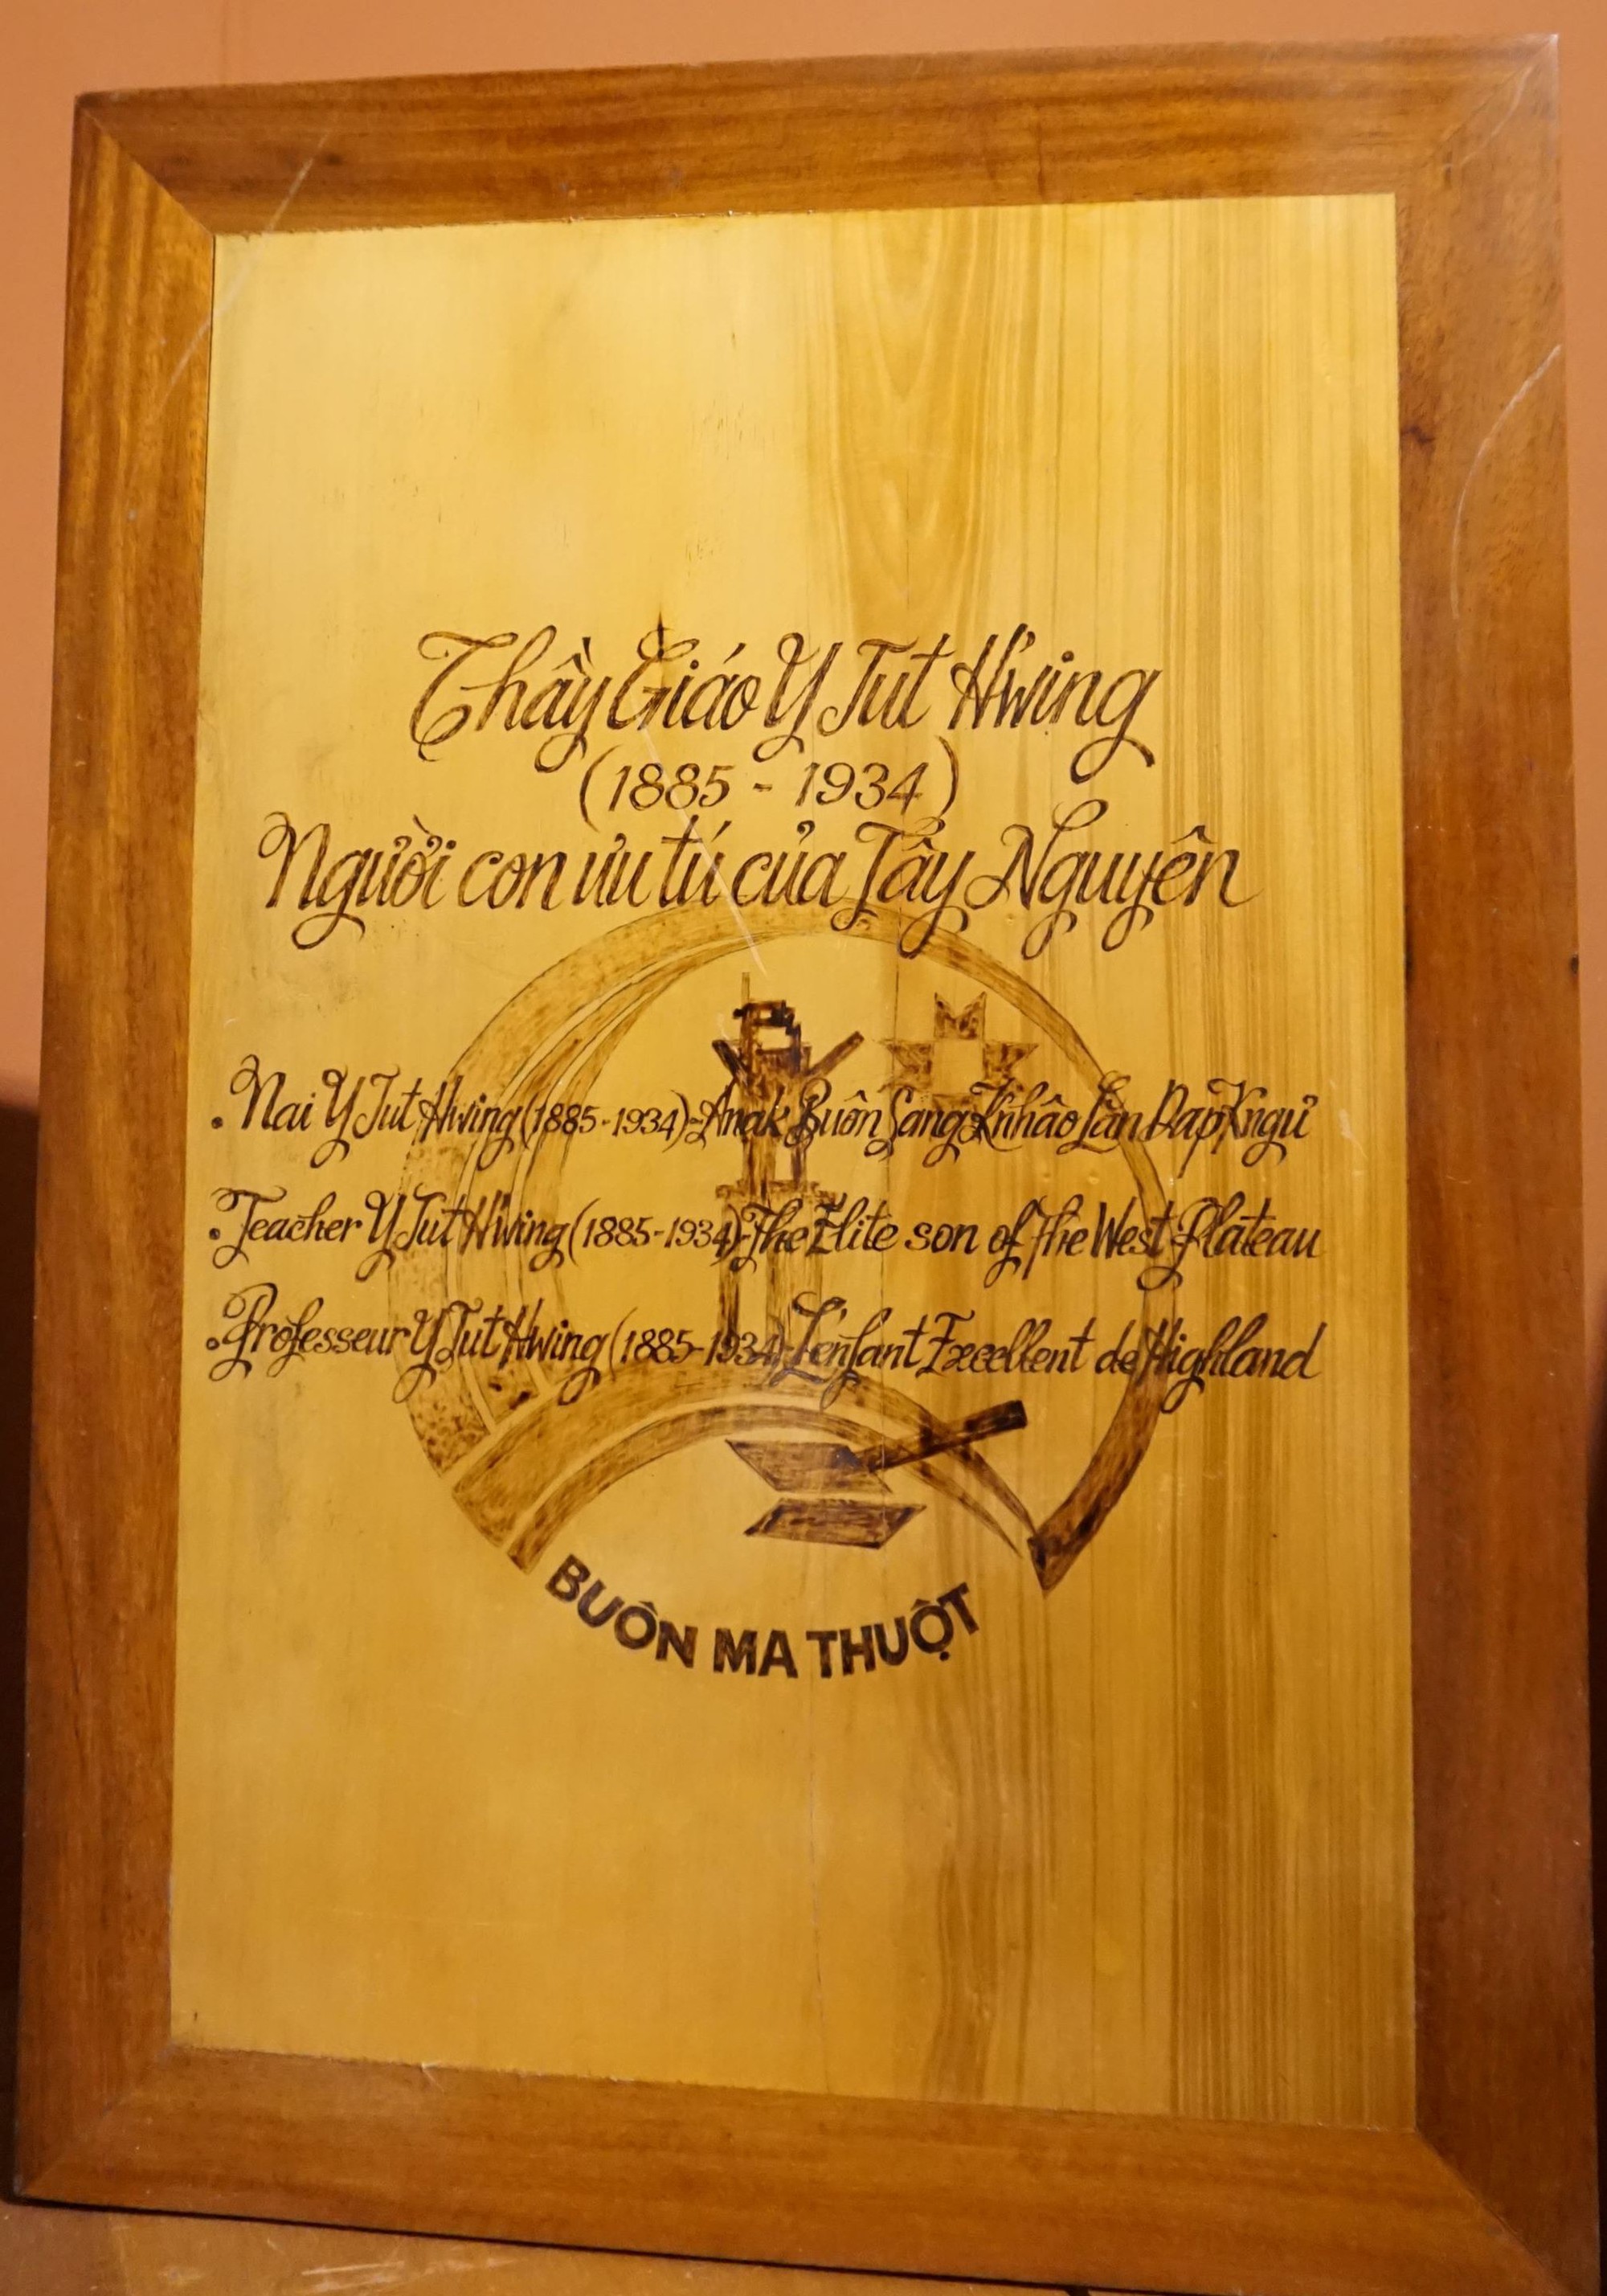 Thầy Giáo Y Jut H'wing
(1885 - 1934)
Người con ưu tú của Tây Nguyên
. Nai Y Jut Hwing (1885-1934)-Anak Buôn Sang Knhâo Lăn Dap Kngư
. Teacher Y Jut Hwing (1885-1934)-The Elite son of the West Plateau
. Professeur Y Jut Hwing (1885-1934)-L'enfant Excellent de Highland
BUÔN MA THUỘT